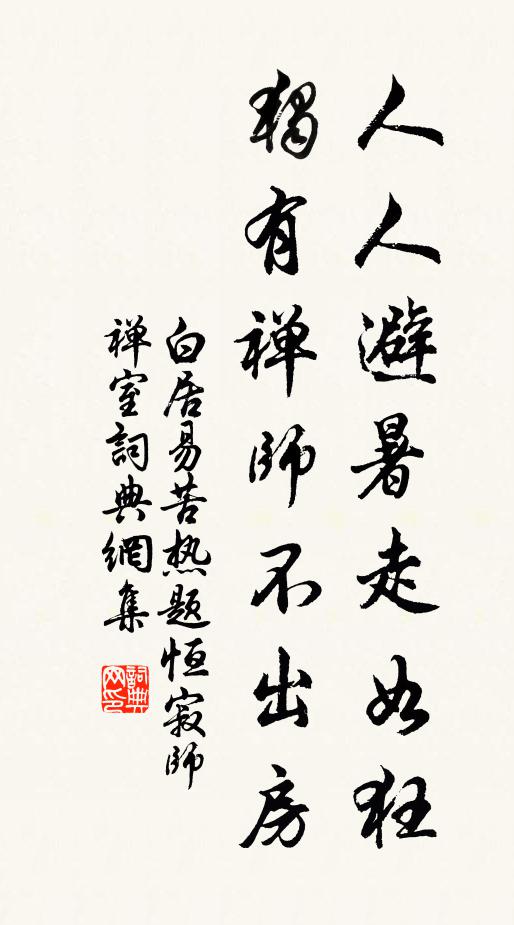 人人避暑走如狂
独有禅師不出房
白居易苦热题恒寂師
禅室詞典網集
詞典网印